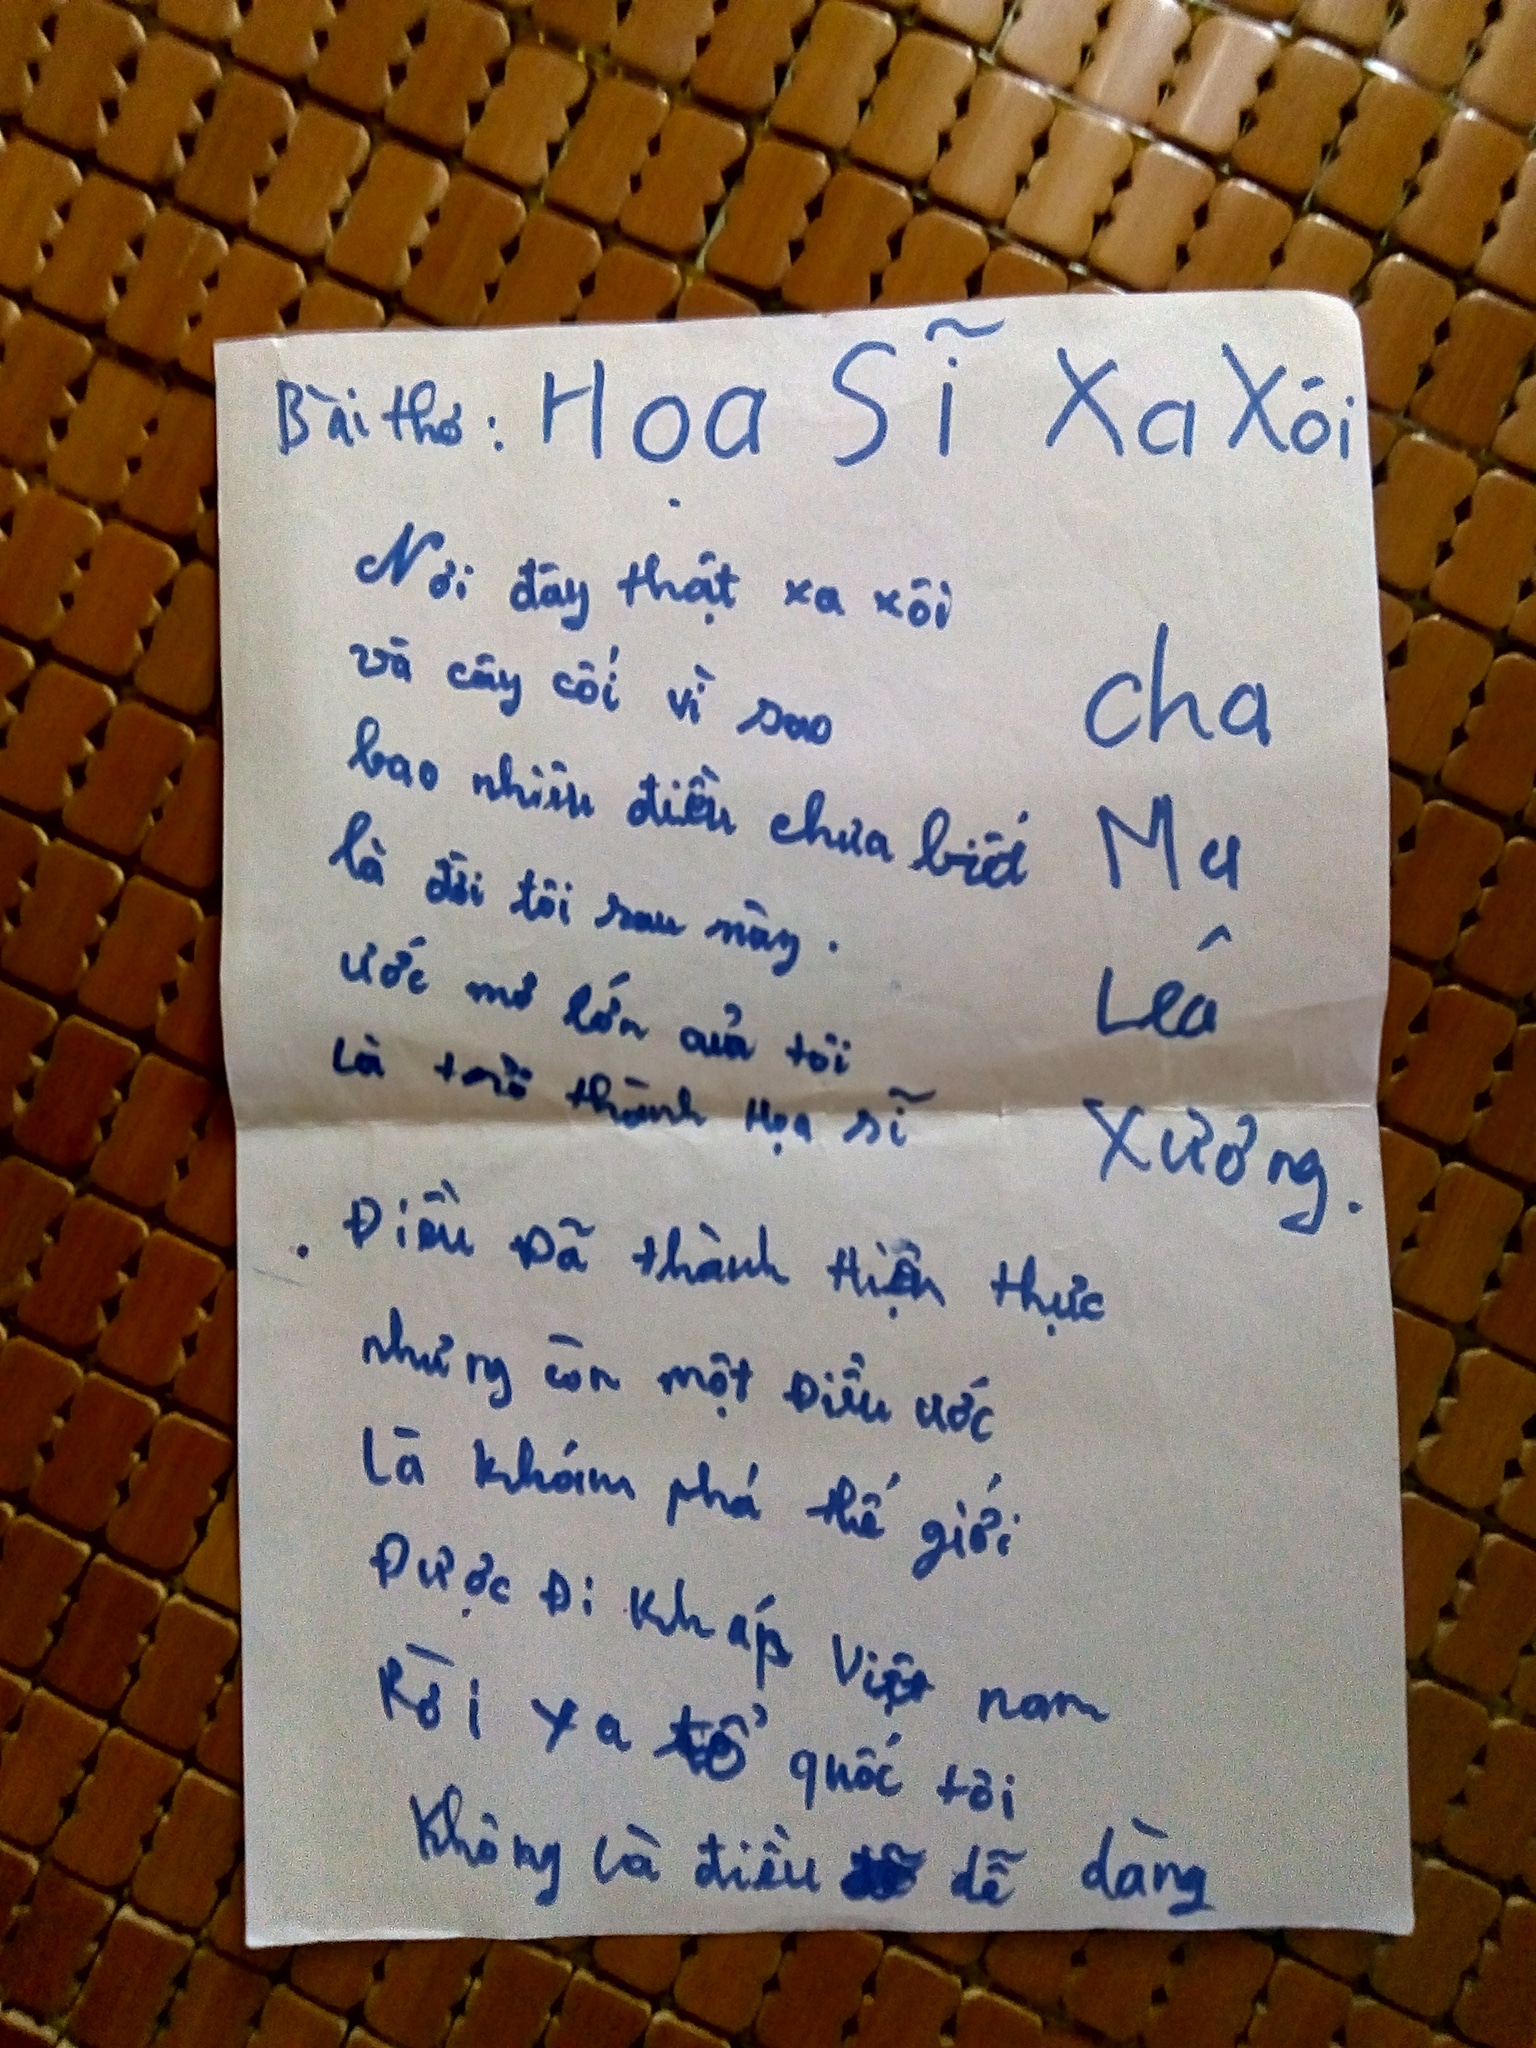 Bài thơ: Họa Sĩ Xa Xôi
Nơi đây thật xa xôi
và cây cối vì sao
bao nhiêu điều chưa biết
là đời tôi sau này.
ước mơ lớn của tôi
là trở thành Họa sĩ
Điều Đã thành Hiện thực
nhưng còn một Điều ước
Là khám phá thế giới
Được Đi Khắp Việt nam
Rời xa tổ quốc tôi
Không là điều dễ dàng
cha
Ma
Lêa
Xương.